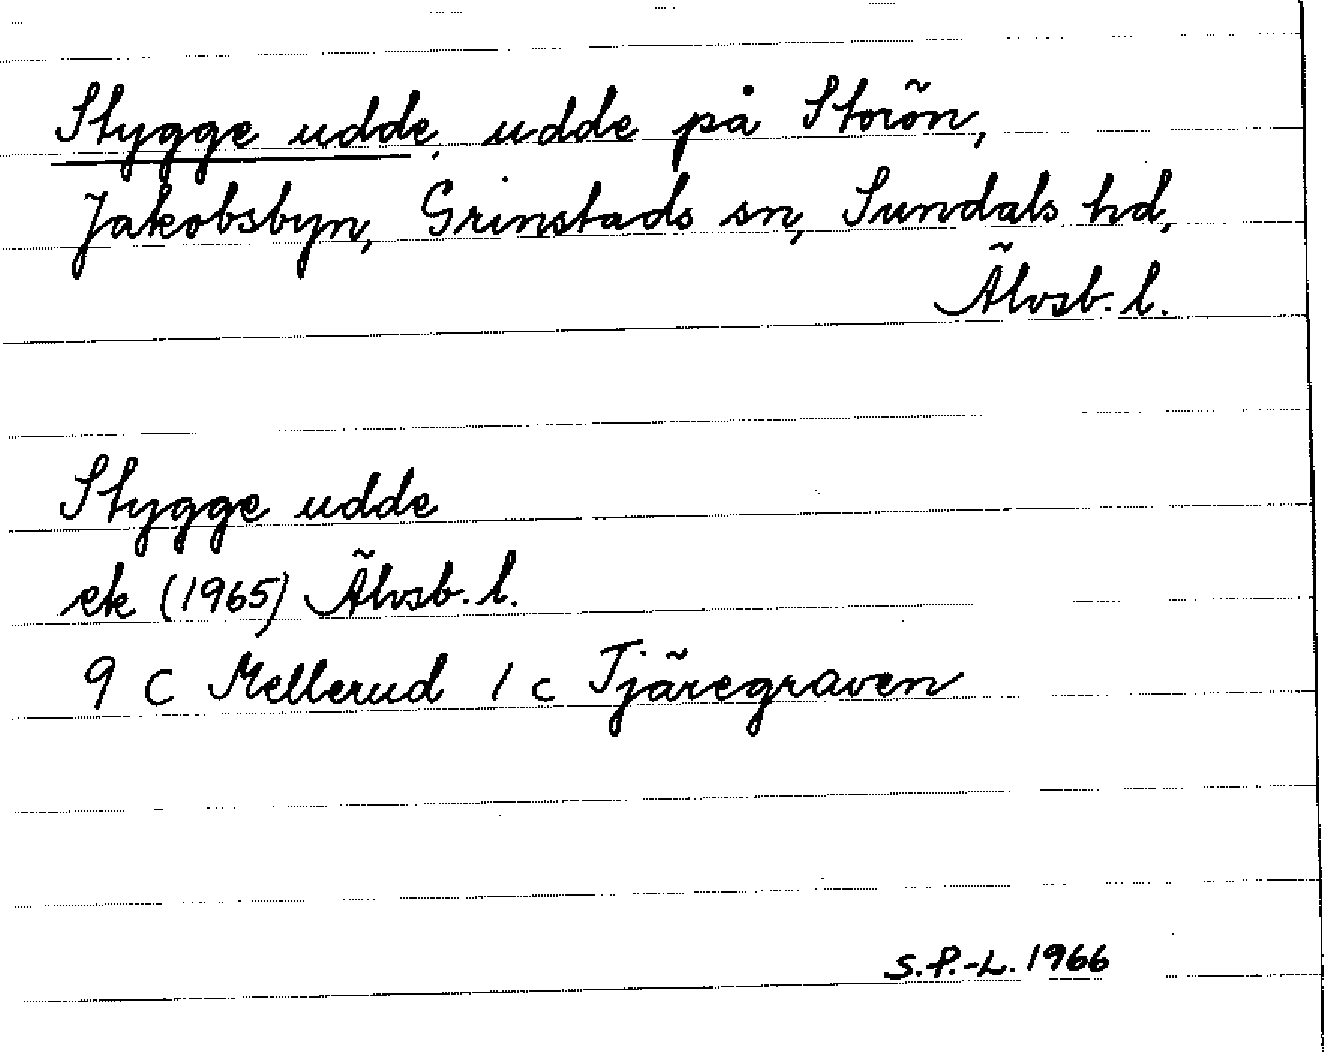 Stygge udde, udde på Storön,
Jakobsbyn, Grinstads sn, Sundals hd,
Älvsb. l.
Stygge udde
ek (1965) Älvsb. l.
9 C Mellerud 1 c Tjäregraven
S.P.-L. 1966